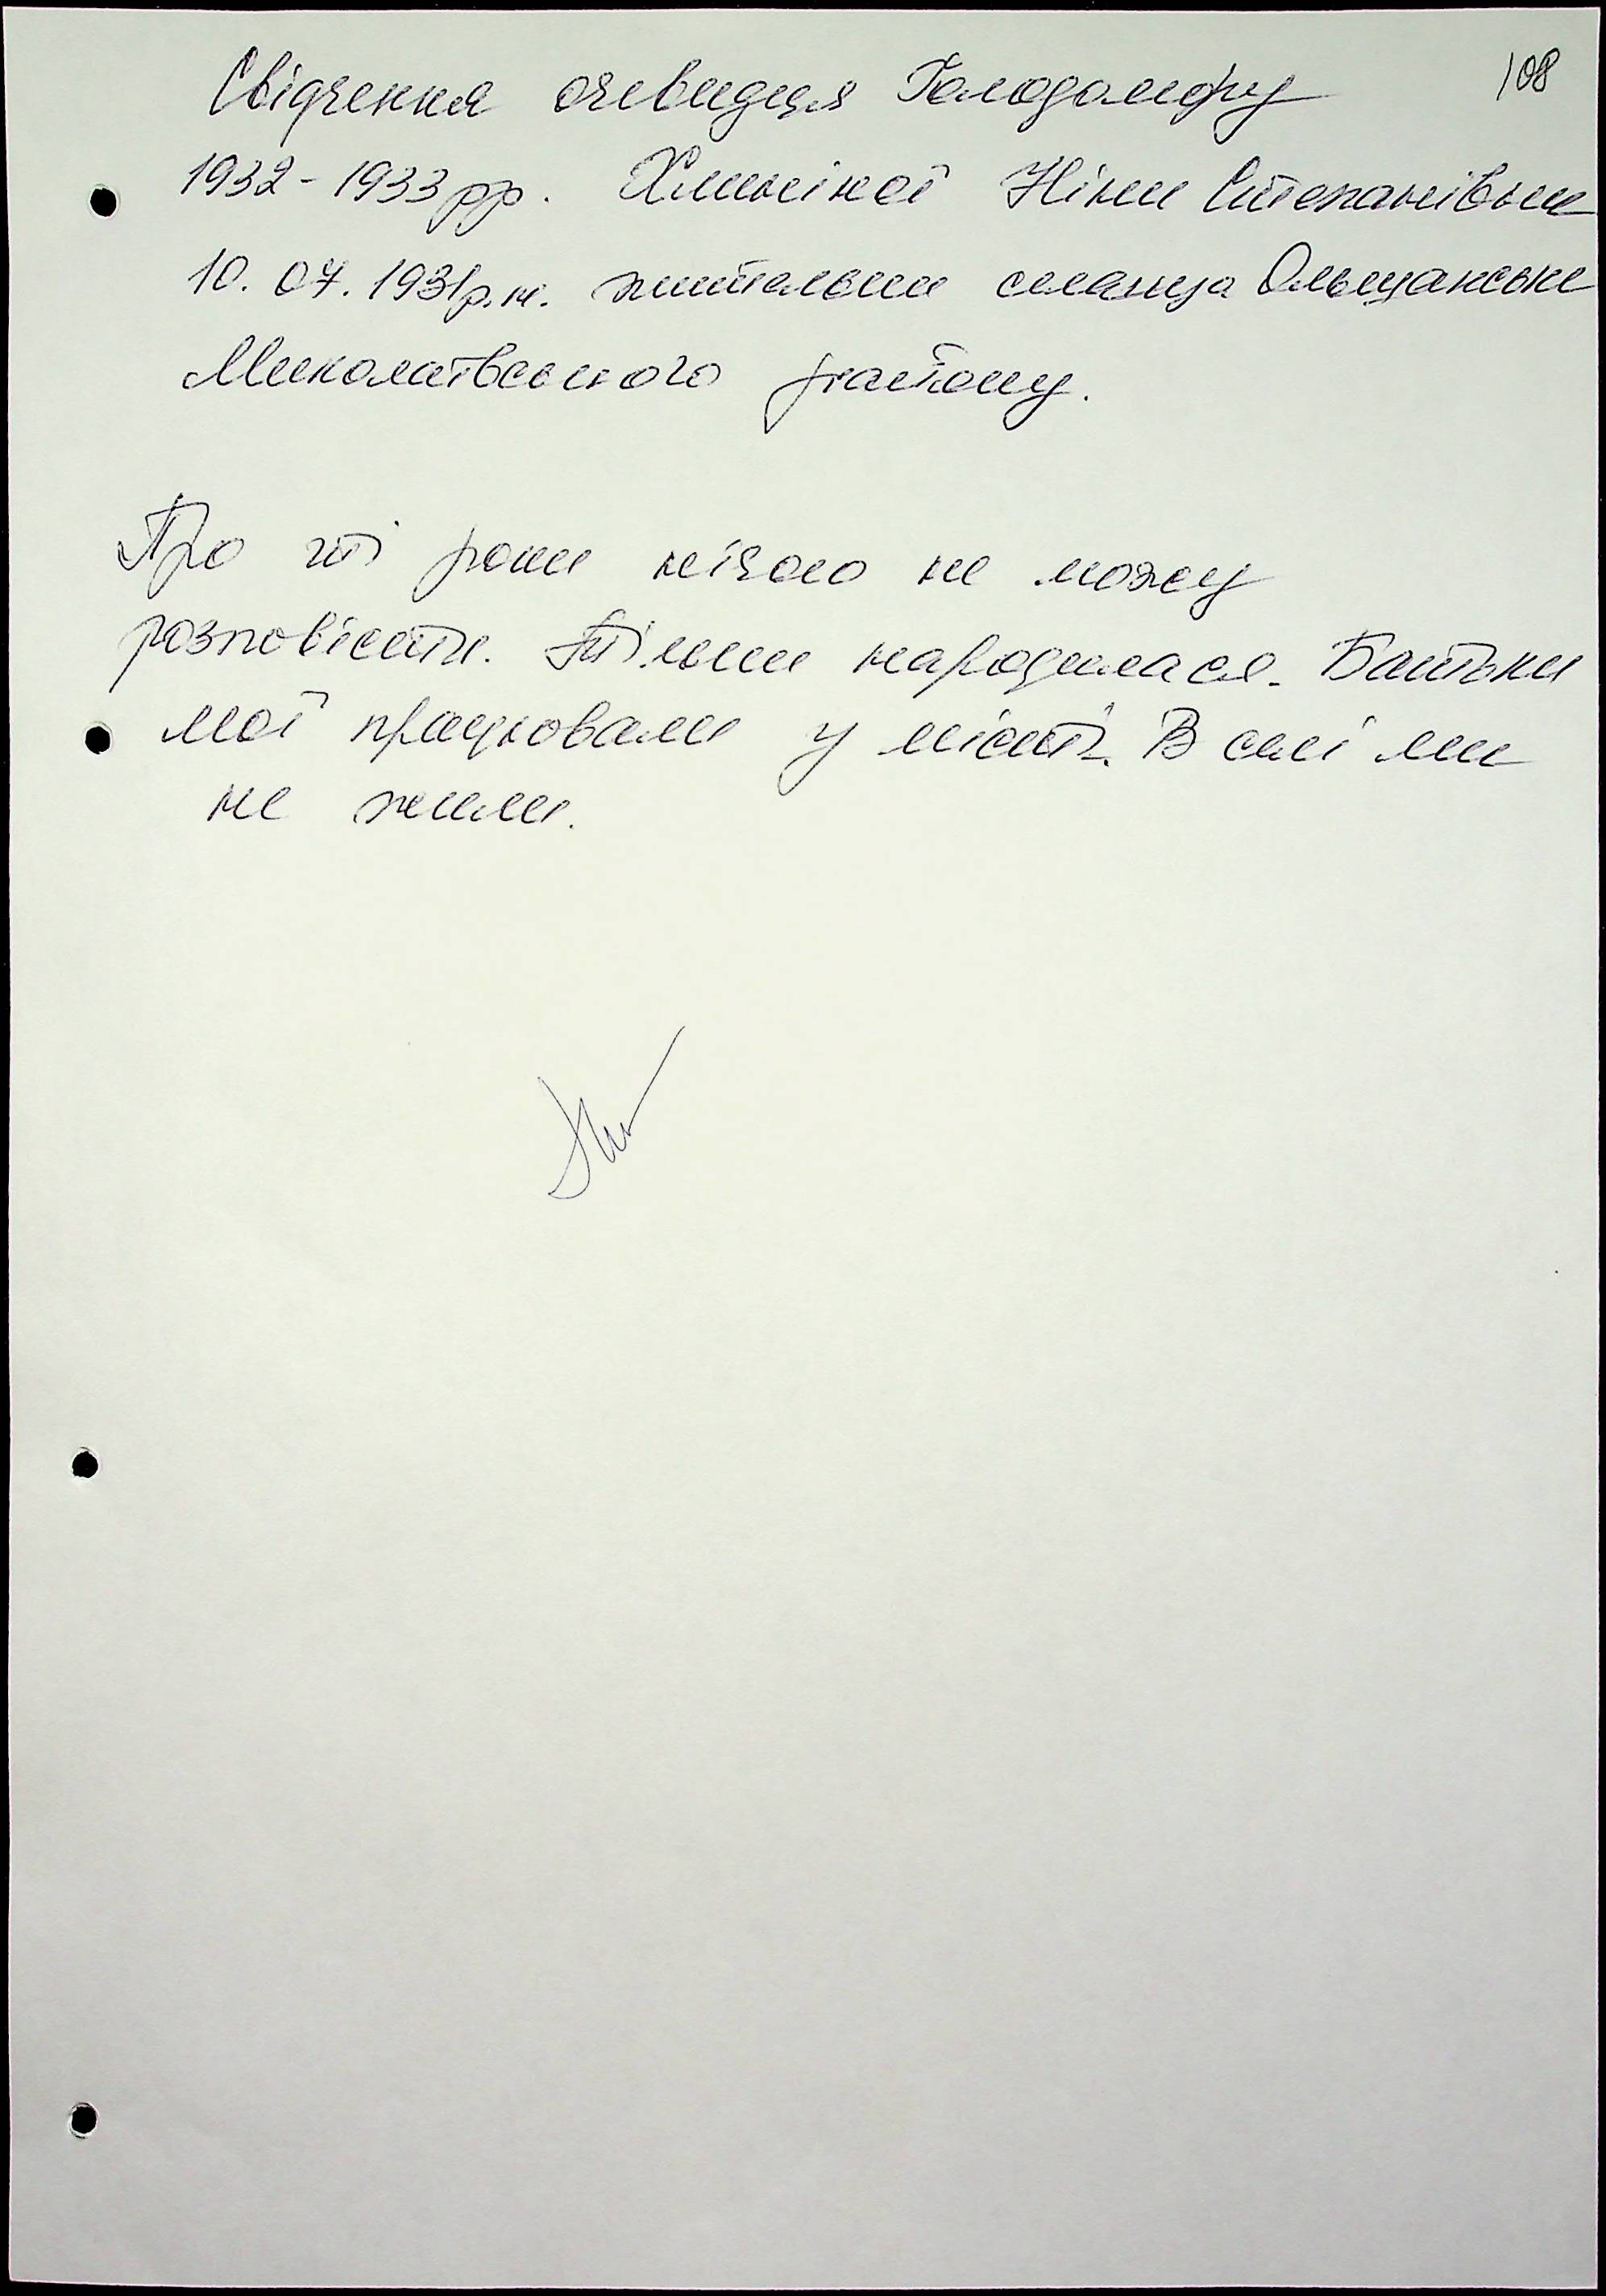 108
Свідчення очевидця Голодомору
1932-1933 рр. Ніни Степанівни
10.07.1931 р.н. жительки селища Ольшанське
Миколаївського району.
Про ті роки нічого не можу
розповісти. Тільки народилася. Батьки
мої працювали у місті. В селі ми
не жили.